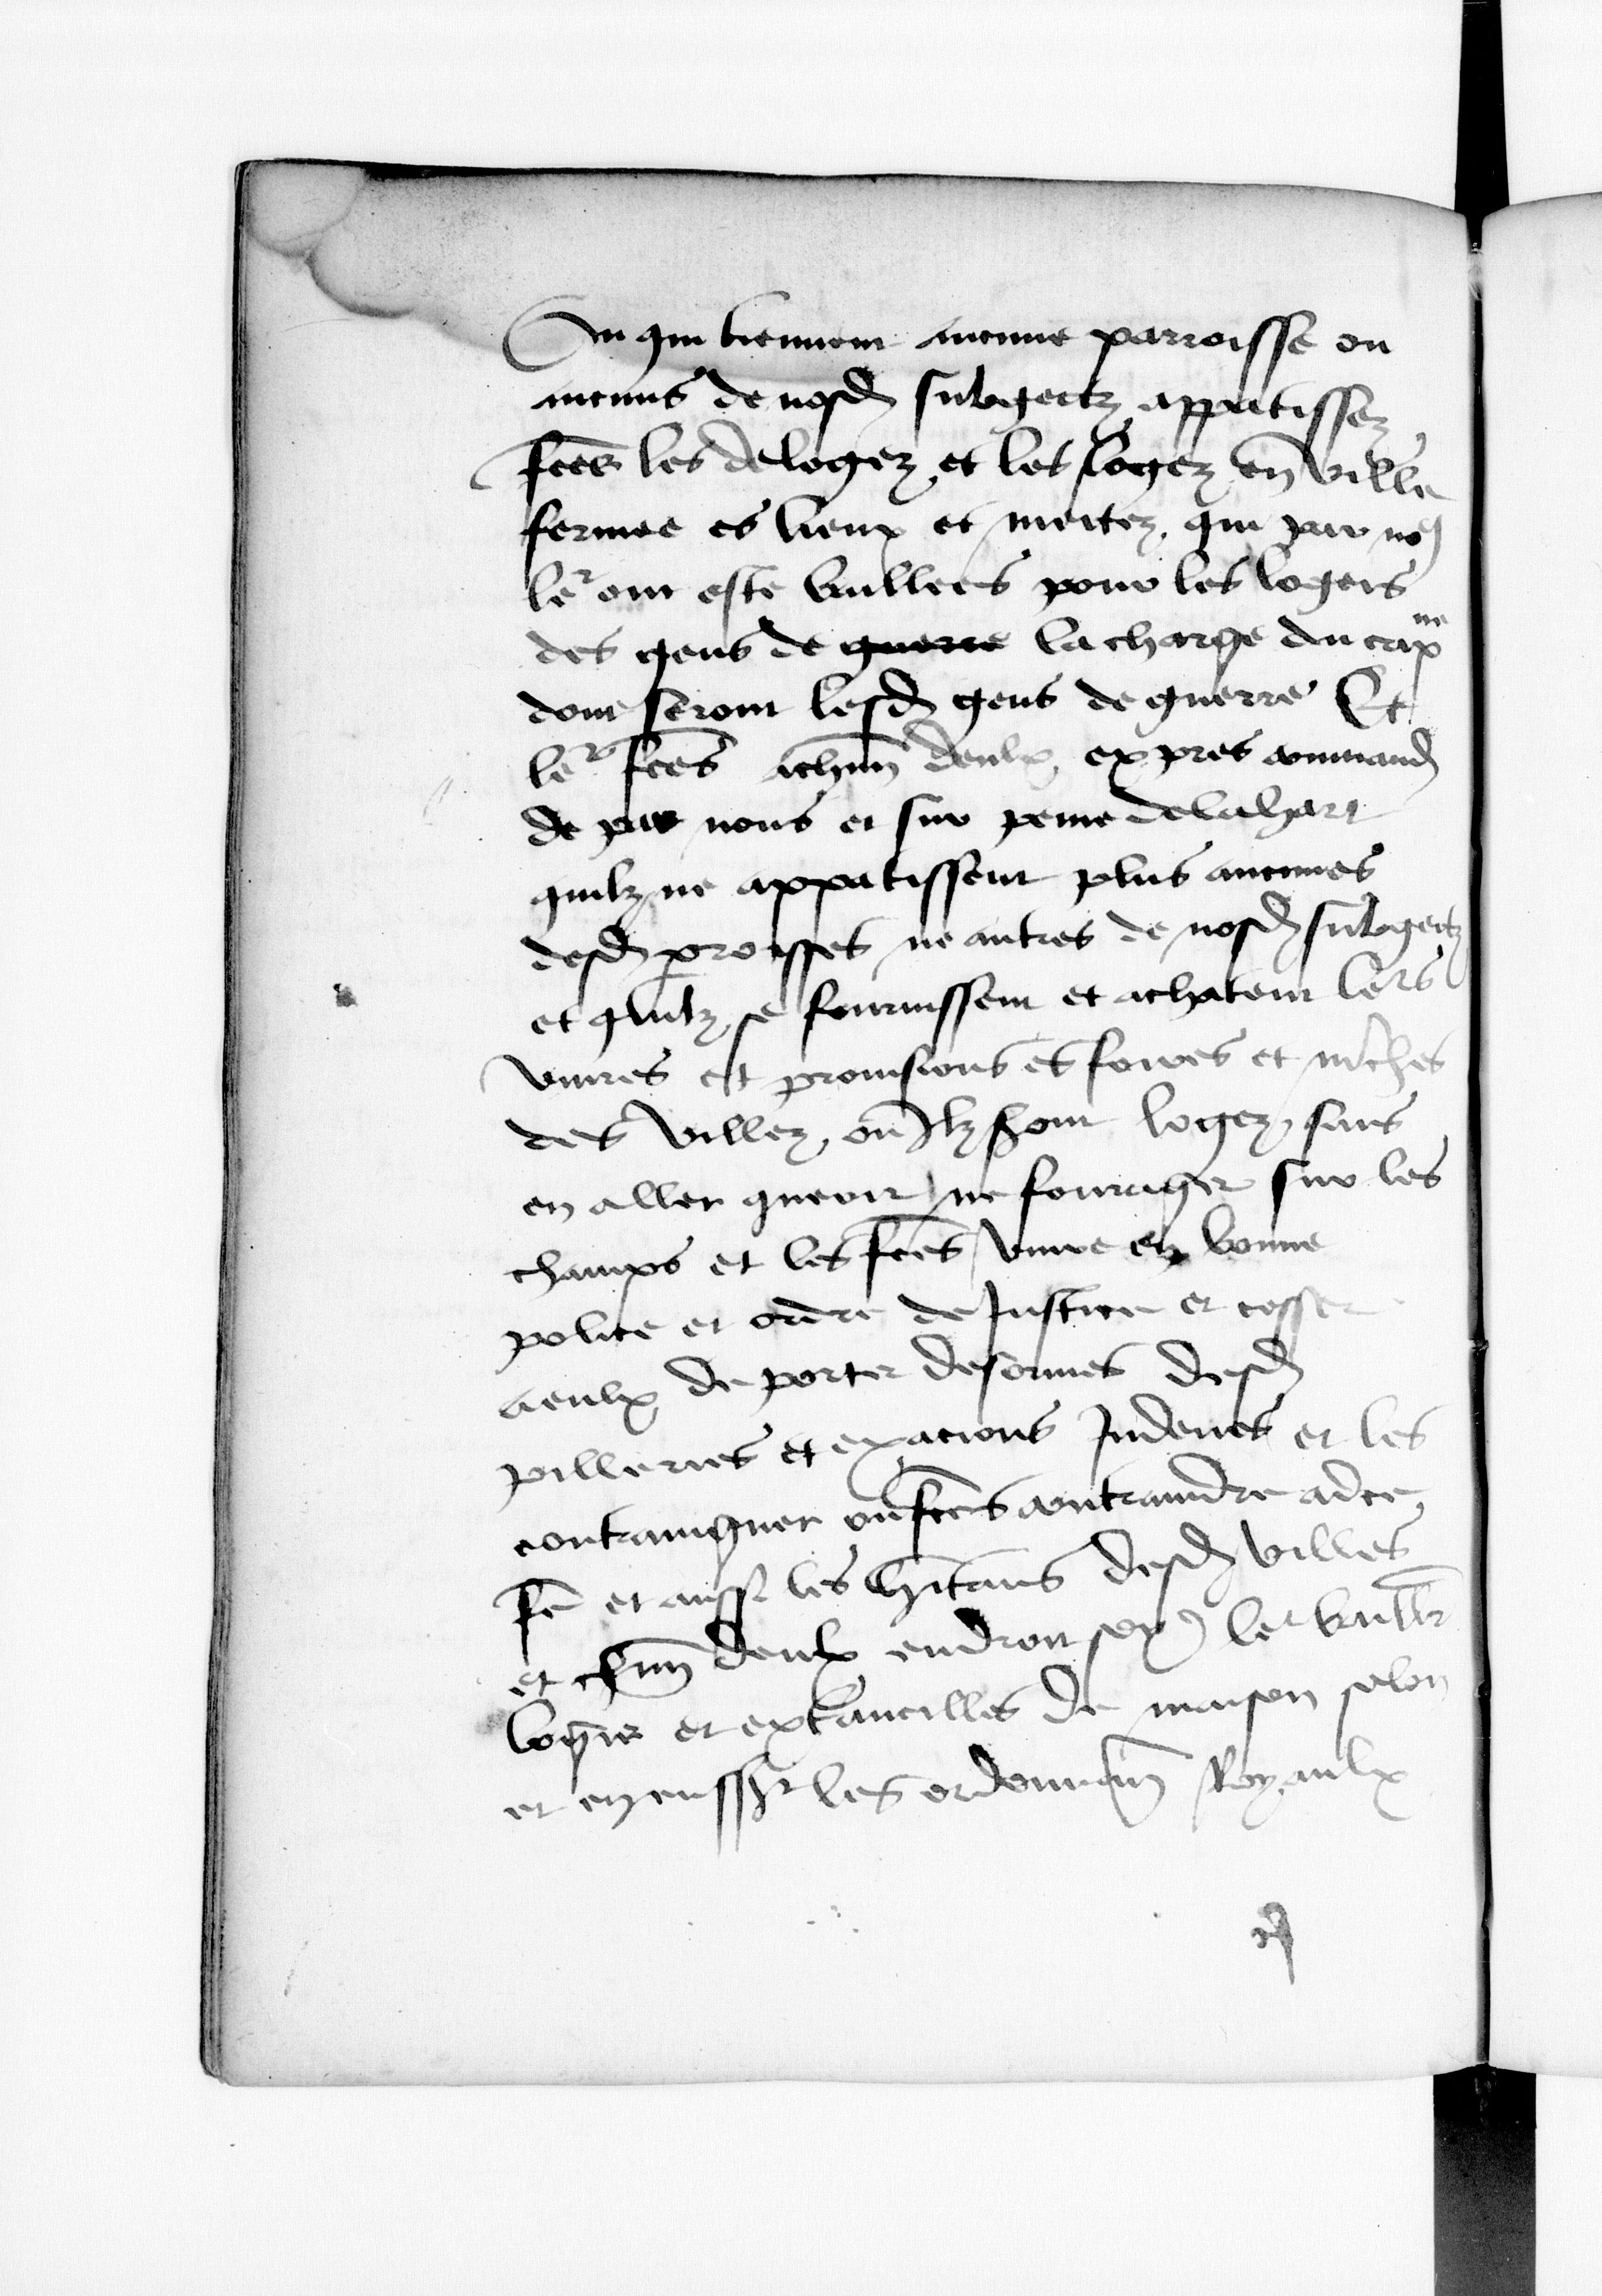 Ou qui tiennent aucune parroisse ou
aucuns de nosd subgectz appatissez
fetes les delogez et les logez en ville
fermee es lieux et mectez qui par no
ler ont este baillees pour les logeis
des gens de guerre la charge du cappne
dont seront lesd gens de guerre Et
ler fetes achun deulx expres command
de par nous et sur peine de la hart
quilz ne appatissent plus aucunes
desd proisses ne autres de nosd subgectz
et quilz se fournissent et achatent lers
vivres et provisions es foires et mches
des villez ou Ilz sont logez sans
en aller querir ne fourager sur les
champs et les fetes vivre en bonne
police et ordre de Justice et cesser
a eulx de porter desormes desd
pilleries et exacions Indeues et les
contraingner ou fetes contraindre ad ce
fe et aussi les hitans desd villes
et chun deulx endroit soy ler bailler
logeis et extancilles de maison selon
et en ensst les ordonnan Royaulx